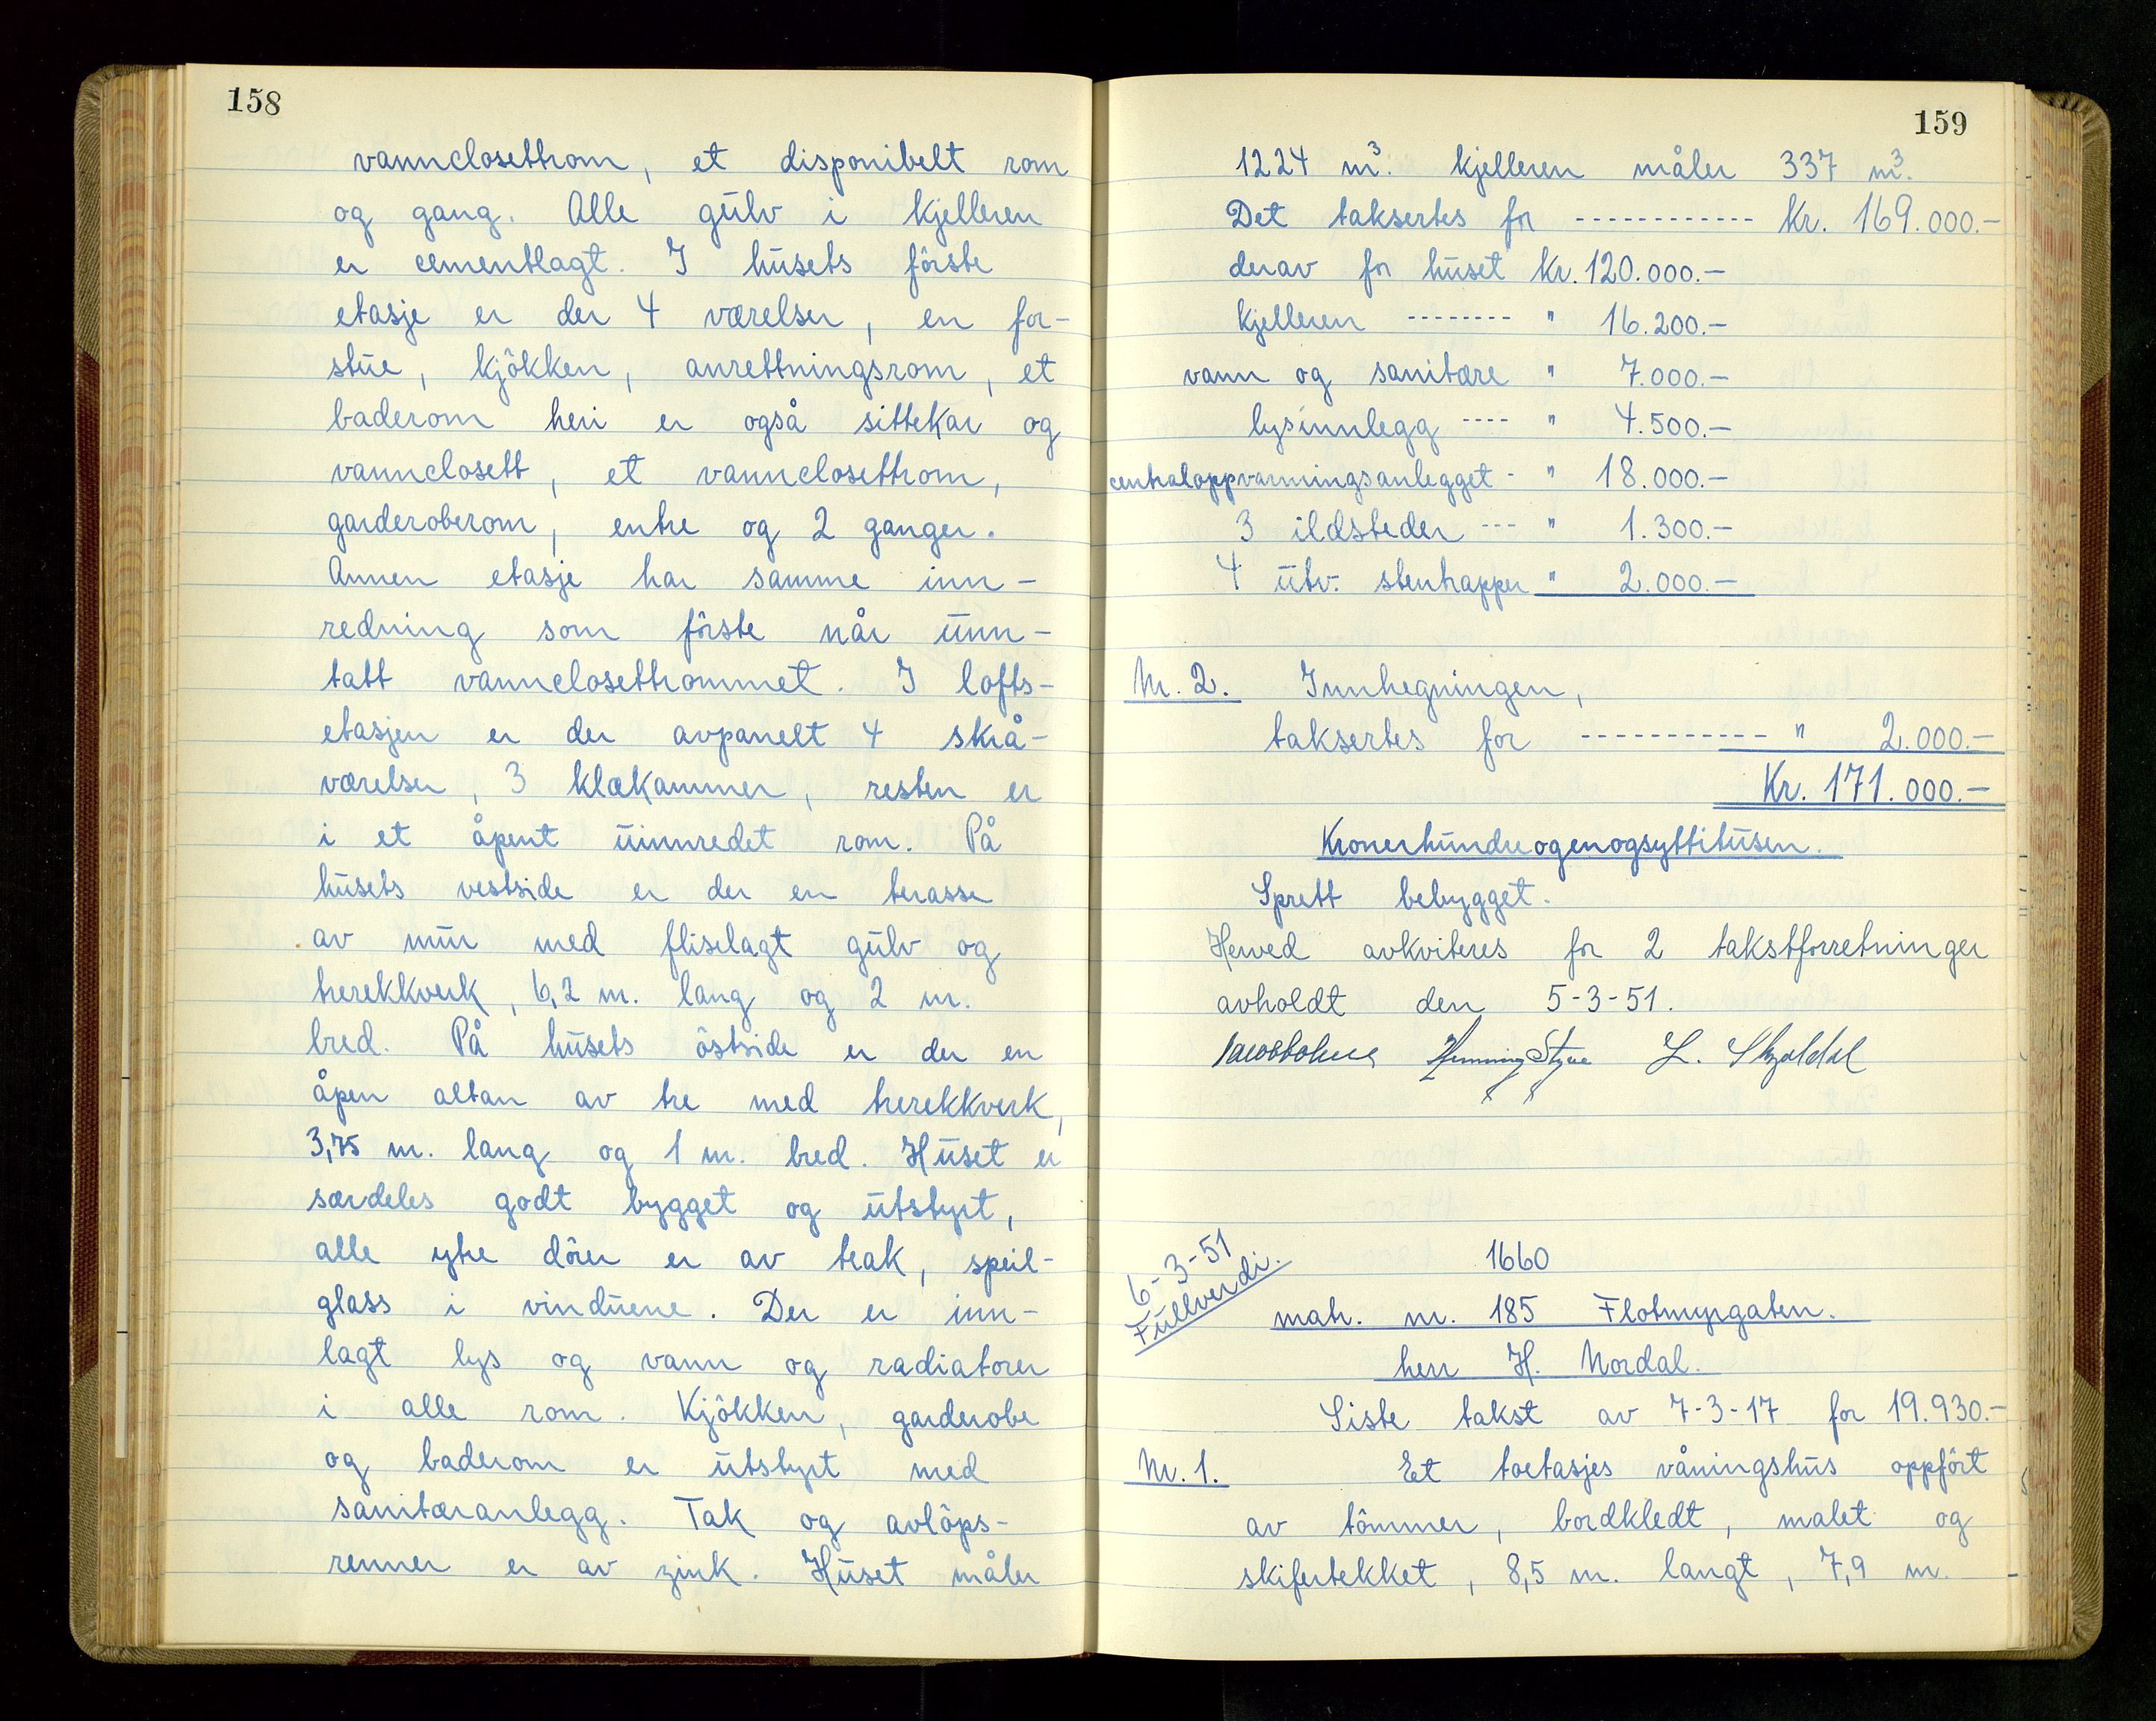 158
vannclosettrom, et disponibelt rom
og gang. Alle gulv i kjelleren
er cementlagt. I husets förste
etasje er der 4 værelser, en for-
stue, kjökken, anrettningsrom, et
baderom heri er også sittekar og
vannclosett, et vannclosettrom,
garderoberom, entre og 2 ganger.
Annen etasje har samme inn-
redning som förste når unn-
tatt vannclosettrommet. I lofts-
etasjen er der avpanelt 4 skrå-
værelser, 3 klækammer, resten er
i et åpent uinnredet rom. På
husets vestside er der en terasse
av mur med fliselagt gulv og
trerekkverk, 6,2 m. lang og 2 m.
bred. På husets östside er der en
åpen altan av tre med trerekkverk,
3,75 m. lang og 1 m. bred. Huset er
særdeles godt bygget og utstyrt,
alle ytre dörer er av teak, speil-
glass i vinduene. Der er inn-
lagt lys og vann og radiatorer
i alle rom. Kjökken, garderobe
og baderom er utstyrt med
sanitæranlegg. Tak og avlöps-
renner er av zink. Huset måler
159
1224 m³. Kjelleren måler 337 m³.
Det taksertes for ------------ Kr. 169.000.-
derav for huset Kr. 120.000.-
kjelleren -------- " 16.200.-
vann og sanitære " 7.000.-
lysinnlegg ---- " 4.500.-
centraloppvarmingsanlegget - " 18.000.-
3 ildsteder --- " 1.300.-
4 utv. stentrapper " 2.000.-
Nr. 2. Innhegningen,
taksertes for ------------ " 2.000.-
Kr. 171.000.-
Kronerhundreogenogsyttitusen.
Spredt bebygget.
Herved avkviteres for 2 takstforretninger
avholdt den 5-3-51.
Henning Styve L. Skjoldal
6-3-51
Fullverdi.
1660
matr. nr. 185 Flotmyrgaten.
herr H. Nordal.
Siste takst av 7-3-17 for 19.930.-
Nr. 1. Et toetasjes våningshus oppfört
av tömmer, bordkledt, malet og
skifertekket, 8,5 m. langt, 7,9 m.